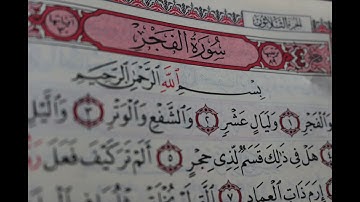 الجزء الثلاثون
سُورَةُ الفَجْرِ
بِسْمِ اللَّهِ الرَّحْمَٰنِ الرَّحِيمِ
وَالْفَجْرِ ١ وَلَيَالٍ عَشْرٍ ٢ وَالشَّفْعِ وَالْوَتْرِ ٣ وَالَّيْلِ
٤ هَلْ فِي ذَٰلِكَ قَسَمٌ لِّذِي حِجْرٍ ٥ أَلَمْ تَرَ كَيْفَ فَعَلَ
إِرَمَ ذَاتِ الْعِمَادِ ٧